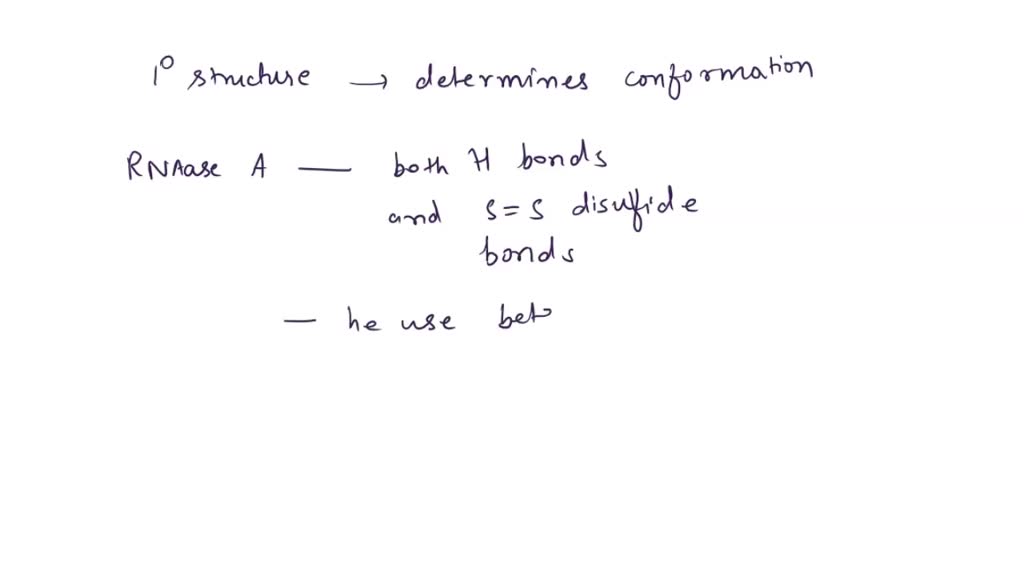 1° structure → determines conformation
RNAase A — both H bonds
and S=S disulfide
bonds
— he use beto